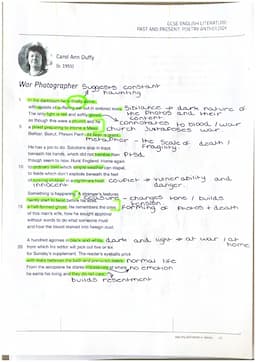 GCSE ENGLISH LITERATURE
PAST AND PRESENT: POETRY ANTHOLOGY
Carol Ann Duffy
(b. 1955)
War Photographer Suggests constant
haunting
In his darkroom he is finally alone
with spools of suffering set out in ordered rows. Sibilance → dark nature of
the photos and their
The only light is red and softly glows, content
as though this were a church and he connotates to blood / war
5 a priest preparing to intone a Mass. church juxtaposes war
Belfast. Beirut. Phnom Penh. All flesh is grass.
metaphor - the scale of death /
fragility.
He has a job to do. Solutions slop in trays
beneath his hands, which did not tremble then PTSD
though seem to now. Rural England. Home again
10 to ordinary pain which simple weather can dispel,
to fields which don't explode beneath the feet
of running children in a nightmare heat. Conflict → vulnerability and
innocent danger.
Something is happening. A stranger's features
faintly start to twist before his eyes, - changes tone / builds
tension
15 a half-formed ghost. He remembers the cries forming of photos + death
of this man's wife, how he sought approval
without words to do what someone must
and how the blood stained into foreign dust.
A hundred agonies in black and white dark and light → at war / at
home
20 from which his editor will pick out five or six
for Sunday's supplement. The reader's eyeballs prick
with tears between the bath and pre-lunch beers. normal life
From the aeroplane he stares impassively at where no emotion
he earns his living and they do not care.
builds resentment